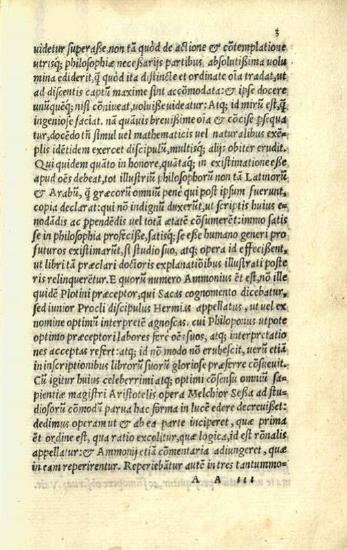 3
uidetur superasse, non tã quòd de actione & cõtemplatione
utrisq; philosophiæ necessarijs partibus absolutissima uolu
mina ediderit, q̃ quòd ita distincte et ordinate oĩa tradat, ut
ad discentis captũ maxime sint accõmodata: & ipse docere
unũquẽq;, nisi cõniueat, uoluisse uideatur: Atq; id mirũ est, q̃
ingeniose faciat. nã quãuis breuissime oĩa & cõcise psequa
tur, docẽdo tñ simul uel mathematicis uel naturalibus exẽ-
plis idẽtidem exercet discipulũ, multisq; alijs obiter erudit.
Qui quidem quãto in honore, quãtaq; in existimatione esse
apud oẽs debeat, tot illustriũ philosophorũ non tã Latinorũ
& Arabũ, q̃ græcorũ omniũ penè qui post ipsum fuerunt,
copia declarat: qui nõ indignũ duxerũt, ut scriptis huius e-
nodãdis ac ppendẽdis uel totã ætatẽ cõsumerẽt: immo satis
se in philosophia profecisse, satisq; se esse humano generi pro
futuros existimarũt, si studio suo, atq; opera id effecissent,
ut libri tã præclari doctoris explanatiõibus illustrati poste
ris relinqueretur. E quorũ numero Ammonius ẽt est, nõ ille
quidẽ Plotini præceptor, qui Sacas cognomento dicebatur,
sed iunior Procli discipulus Hermiæ appellatus, ut uel ex
nomine optimũ interpretẽ agnoscas. cui Philoponus utpote
optimo præceptori labores ferè oẽs suos, atq; interpretatio
nes acceptas refert: atq; id nõ modo nõ erubescit, uerũ etiã
in inscriptionibus librorũ suorũ gloriose præferre cõsueuit.
Cũ igitur huius celeberrimi atq; optimi cõsensu omniũ sa-
pientiæ magistri Aristotelis opera Melchior Sessa ad stu-
diosorũ cõmodũ parua hac forma in lucẽ edere decreuisset:
dedimus operam ut ab ea parte inciperet, quæ prima
ẽt ordine est, qua ratio excolitur, quæ logica, id est rõnalis
appellatur: & Ammonij etiã cõmentaria adiungeret, quæ
in eam reperirentur. Reperiebãtur autẽ in tres tantummo-
A A iii